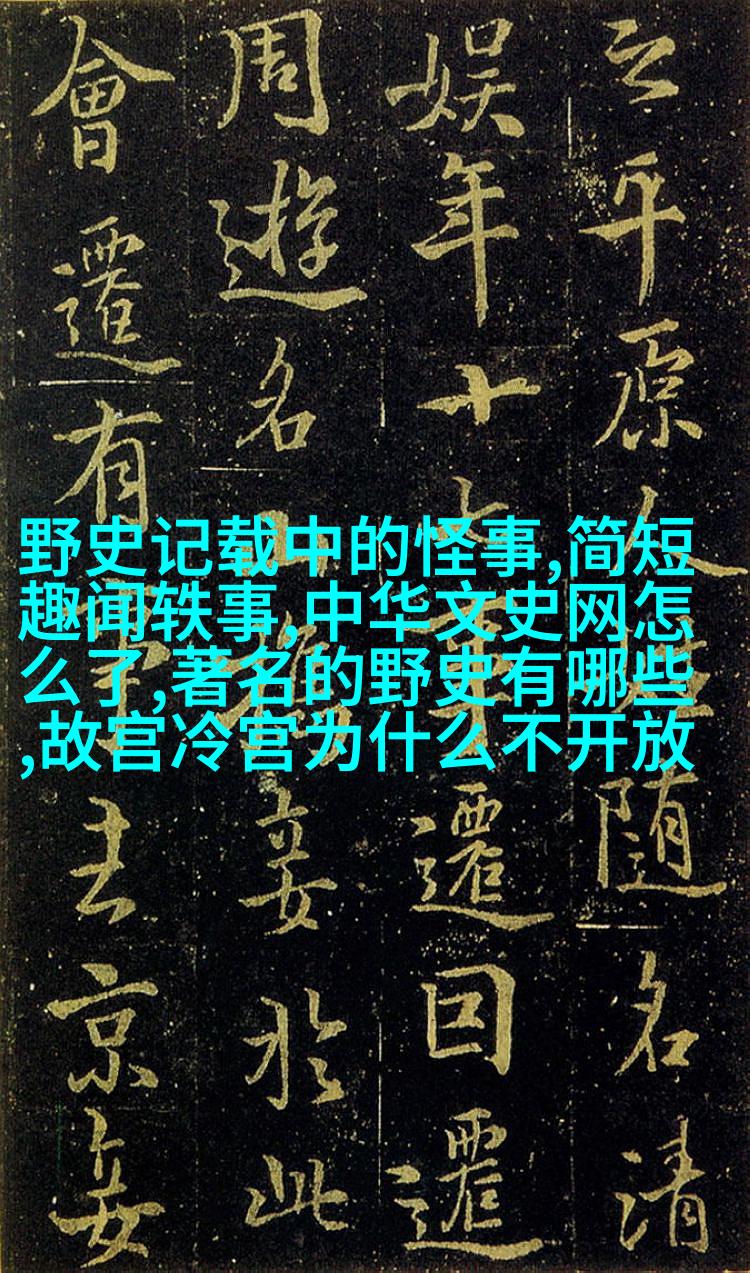 之平原人随名清
娱年十七遷回遷
周遊名山妾於此
會遷有京妾
野史记载中的怪事,简短
趣闻轶事,中华文史网怎
么了,著名的野史有哪些
,故宫冷宫为什么不开放